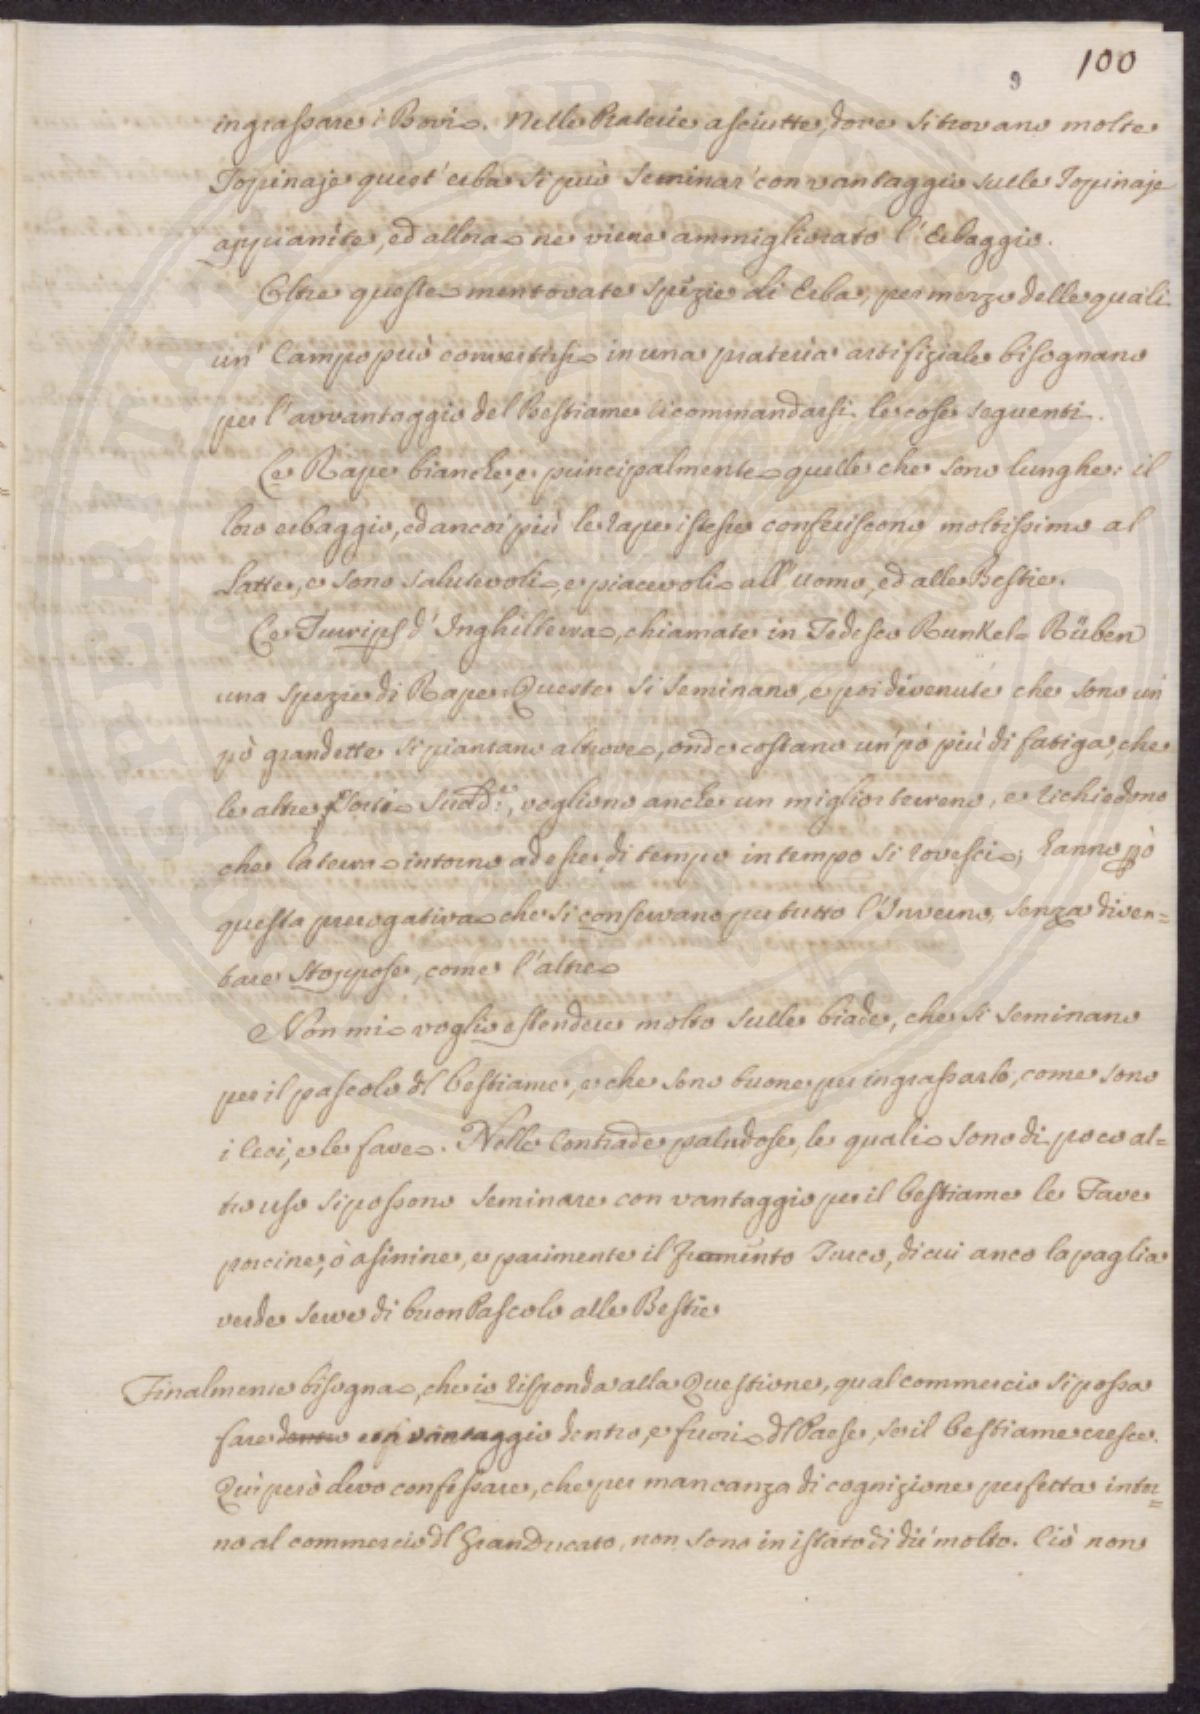 100
9
ingrassare i Bovi. Nelle Praterie asciutte, dove si trovano molte
Topinaje quest' erba si può seminar' con vantaggio sulle Topinaje
appianite, ed allora ne viene ammigliorato l' Erbaggio.
Oltre queste mentovate spezie di Erba, per mezzo delle quali
un' Campo può convertirsi in una prateria artifiziale bisognano
per l'avvantaggio del Bestiame ricommandarsi le cose seguenti.
Le Rape bianche, e principalmente quelle che sono lunghe: il
loro erbaggio, ed ancor più le rape istesse conferiscono moltissimo al
Latte, e sono salutevoli, e piacevoli all' uomo, ed alle Bestie.
Le Turnips d' Inghilterra, chiamate in Tedesco Runkel= Rüben
una spezie di Rape. Queste si seminano, e poi divenute che sono un
pò grandette si piantano altrove, onde costano un' pò più di fatiga, che
le altre sorti sudd.e, vogliono anche un miglior terreno, e richiedono
che la terra intorno ad esse di tempo in tempo si rovesci; hanno pò
questa prerogativa che si conservano per tutto l'Inverno, senza diven=
tare stoppose, come l'altre
Non mi voglio estendere molto sulle biade, che si seminano
per il pascolo dl bestiame, e che sono buone per ingrassarlo, come sono
i Ceci, e le fave. Nelle Contrade paludose, le quali sono di poco al=
tro uso si possono seminare con vantaggio per il bestiame le Fave
porcine, ò asinine, e parimente il frumento Turco, di cui anco la paglia
verde serve di buon Pascolo alle Bestie
Finalmente bisogna, che io risponda alla Questione, qual commercio si possa
fare dentro con vantaggio dentro, e fuori dl Paese, se il bestiame cresce.
Qui però devo confessare, che per mancanza di cognizione perfetta intor=
no al commercio dl Gran Ducato, non sono in istato di dir' molto. Ciò non